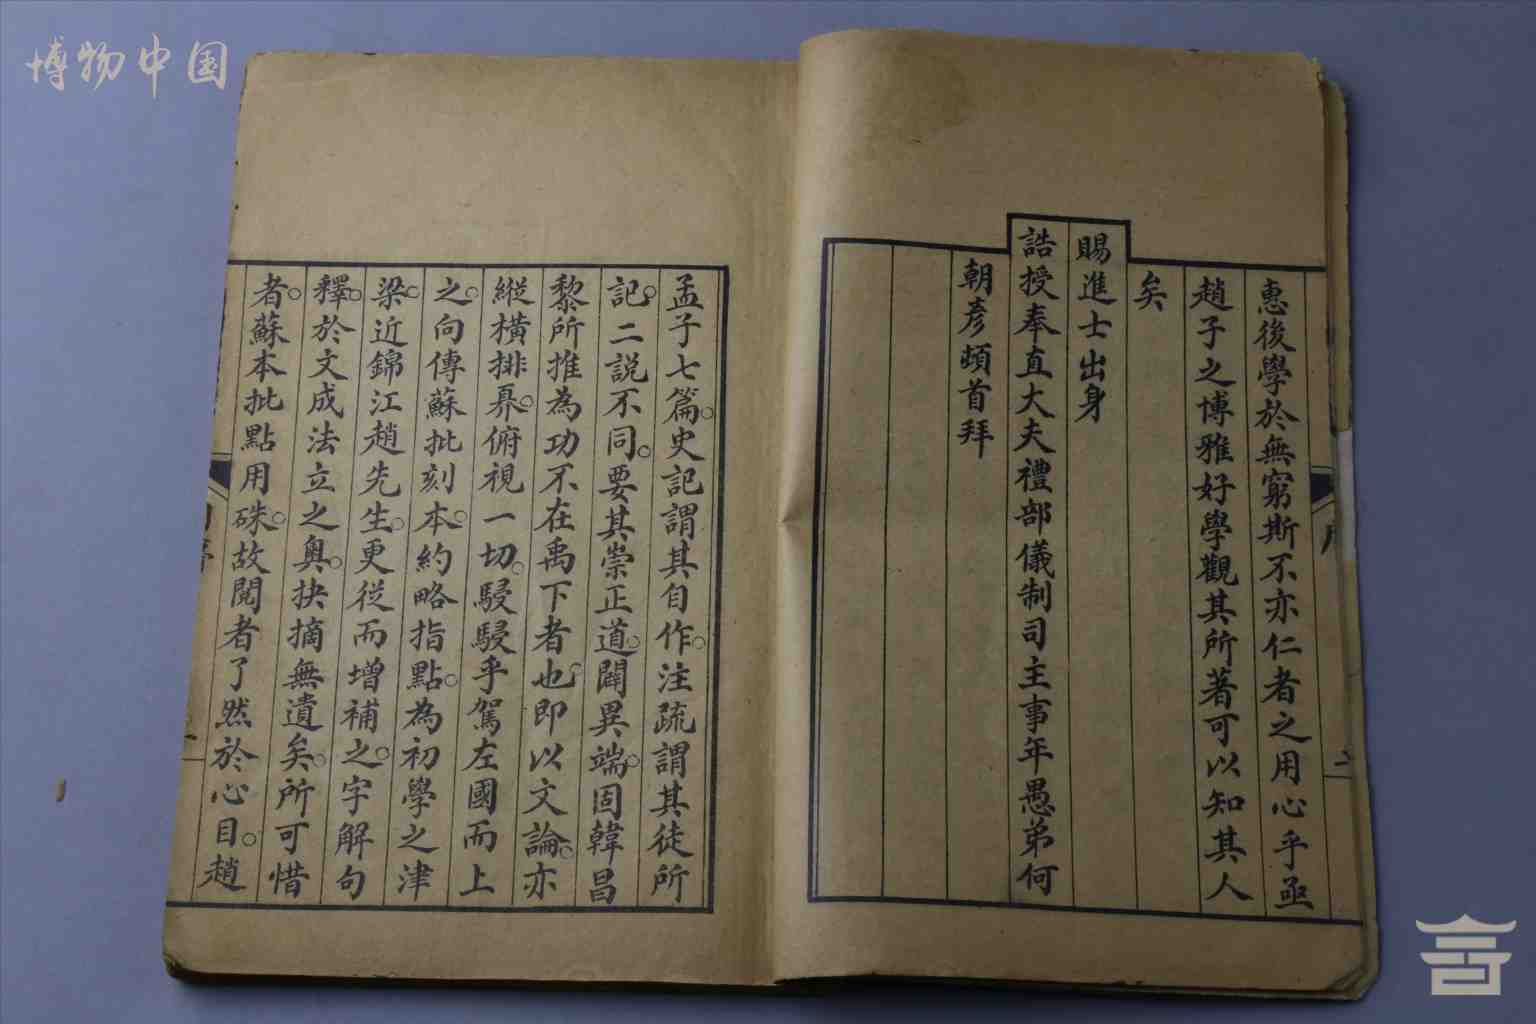 博物中国
惠後學於無窮斯不亦仁者之用心乎亟
趙子之博雅好學觀其所著可以知其人
矣
賜進士出身
誥授奉直大夫禮部儀制司主事年愚弟何
朝彥頓首拜
孟子七篇。史記謂其自作。注疏謂其徒所
記。二說不同。要其崇正道。闢異端。固韓昌
黎所推為功不在禹下者也。即以文論。亦
縱橫排奡。俯視一切。駸駸乎駕左國而上
之。向傳蘇批刻本。約略指點。為初學之津
梁。近錦江趙先生。更從而增補之。字解句
釋。於文成法立之奧。抉摘無遺矣。所可惜
者。蘇本批點用硃。故閱者了然於心目。趙
序
二